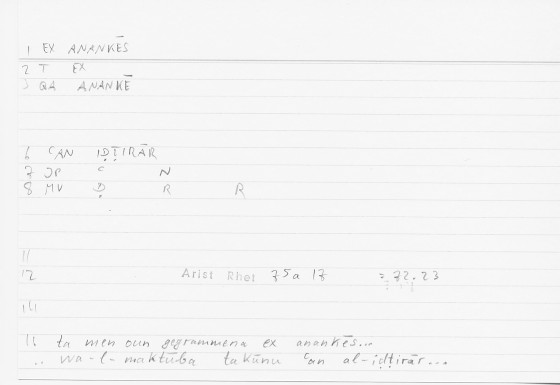 1 EX ANANKĒS
2 T EX
3 QA ANANKĒ
6 ʿAN IḌṬIRĀR
7 JP ʿ N
8 MV Ḍ R R
11
12 Arist Rhet 75a 17 = 72.23
14
ta men oun gegrammena ex anankēs...
wa-l-maktūba takūnu ʿan al-iḍṭirār...